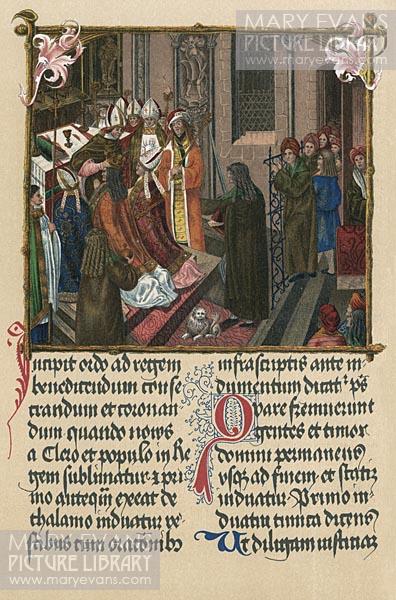 MARY EVANS
PICTURE LIBRARY
www.maryevans.com
Incipit ordo ad regem
benedicendum conse
crandum et coronan
dum quando novus
a Clero et populo in Re
gem sublimatur: pri
mo anteqm̄ exeat de
thalamo induatur ve
stibus cum orationibz
infrascriptis ante in
dumentum dicat' ps
Quare fremuerunt
gentes et timor
domini permanens
vsqz ad finem et statiz
induatur Primo in
duatur tunica dicens
Ut diligam
MARY EVANS
PICTURE LIBRARY
www.maryevans.com